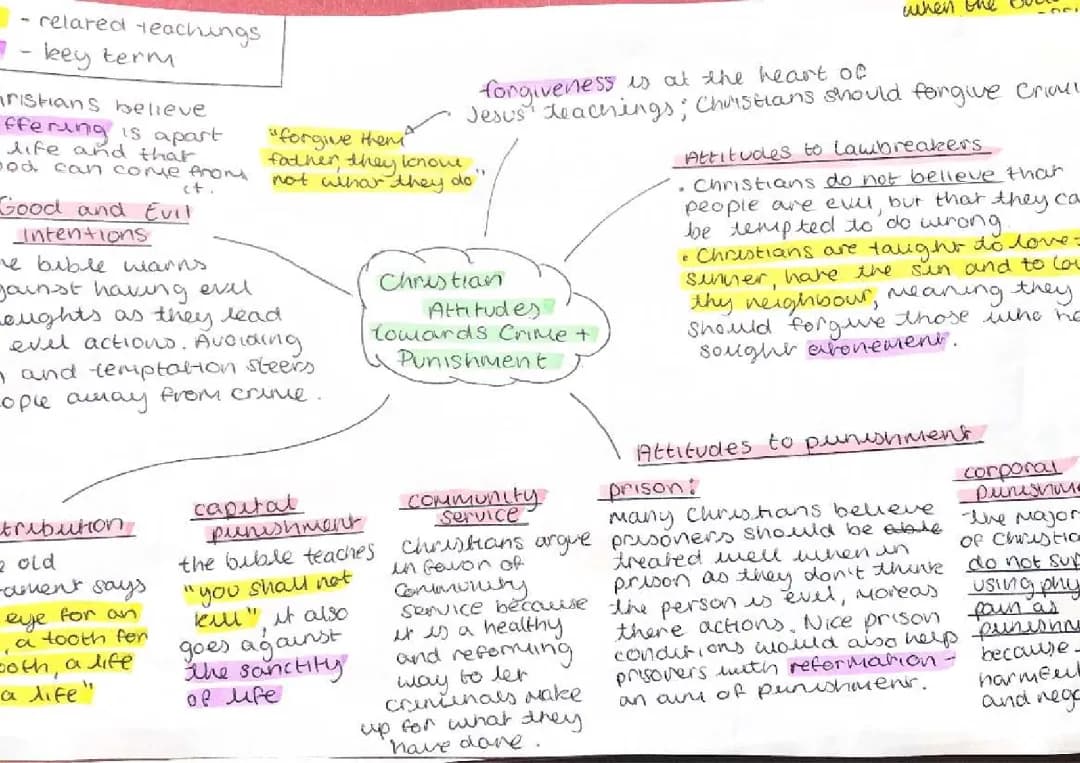 - related teachings
- key term
when the
forgiveness is at the heart of
Jesus' teachings; Christians should forgive
"forgive them
father, they know
not what they do"
ristians believe
ffering is apart
life and that
ood can come from
it.
Good and Evil
Intentions
bible warns
gainst having evil
oughts as they lead
evil actions. Avoiding
and temptation steers
ople away from crime.
Christian
Attitudes
towards Crime +
Punishment
Attitudes to lawbreakers
• Christians do not believe that
people are evil, but that they ca
be tempted to do wrong.
• Christians are taught to love
sinner, hate the sin and to lo
thy neighbour, meaning they
should forgive those who
sought atonement.
Attitudes to punishment
tribution
old
ament says
eye for an
, a tooth for
ooth, a life
a life"
capital
punishment
the bible teaches
"you shall not
kill", it also
goes against
the sanctity
of life
community
service
Christians argue
in favor of
community
service because
it is a healthy
and reforming
way to let
criminals make
up for what they
have done.
prison:
many Christians believe
prisoners should be
treated well when in
prison as they don't think
the person is evil, moreas
there actions. Nice prison
conditions would also help
prisoners with reformation -
an aim of punishment.
corporal
punishm
the major
of Christia
do not sup
using phy
pain as
punishm
because
harmful
and nega